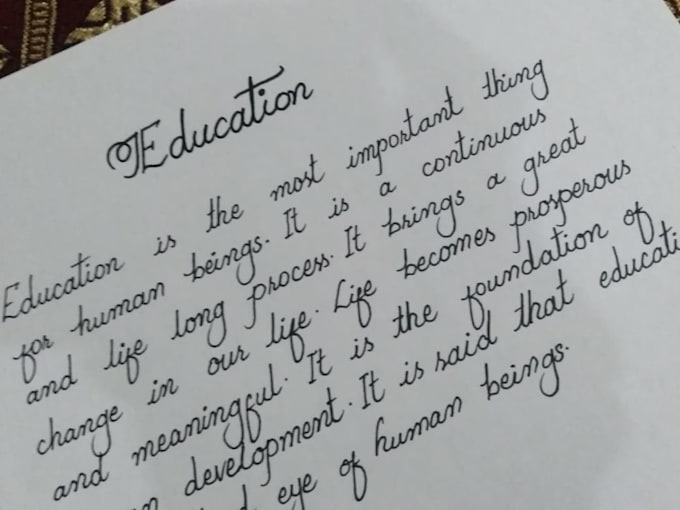 Education
Education is the most important thing
for human beings. It is a continuous
and life long process. It brings a great
change in our life. Life becomes prosperous
and meaningful. It is the foundation of
development. It is said that educati
eye of human beings.